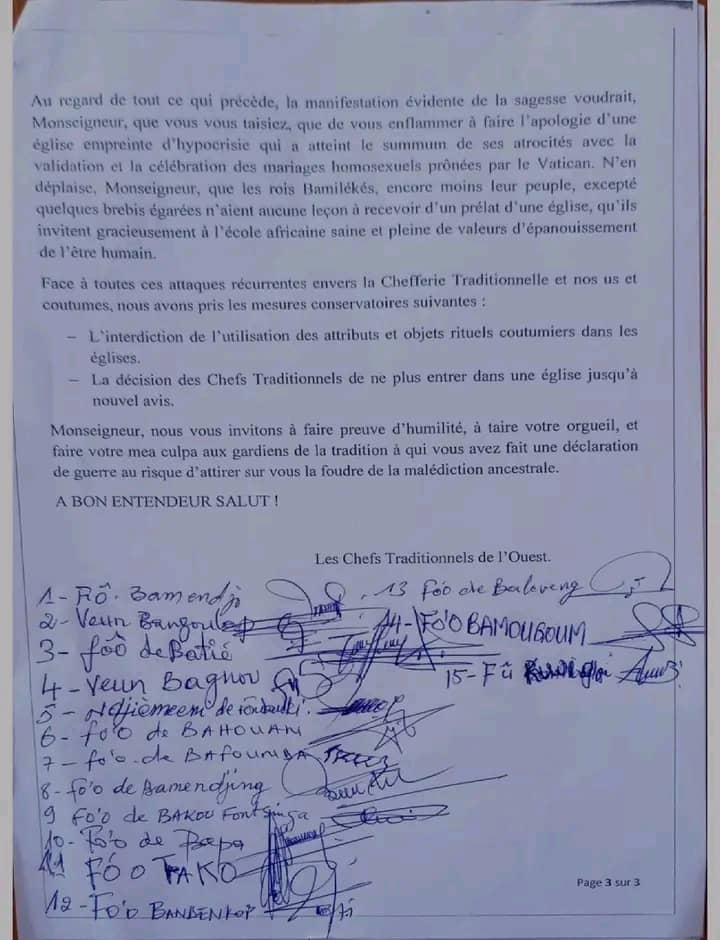 Au regard de tout ce qui précède, la manifestation évidente de la sagesse voudrait,
Monseigneur, que vous vous taisiez, que de vous enflammer à faire l'apologie d'une
église empreinte d'hypocrisie qui a atteint le summum de ses atrocités avec la
validation et la célébration des mariages homosexuels prônées par le Vatican. N'en
déplaise, Monseigneur, que les rois Bamilékés, encore moins leur peuple, excepté
quelques brebis égarées n'aient aucune leçon à recevoir d'un prélat d'une église, qu'ils
invitent gracieusement à l'école africaine saine et pleine de valeurs d'épanouissement
de l'être humain.
Face à toutes ces attaques récurrentes envers la Chefferie Traditionnelle et nos us et
coutumes, nous avons pris les mesures conservatoires suivantes :
– L'interdiction de l'utilisation des attributs et objets rituels coutumiers dans les
églises.
– La décision des Chefs Traditionnels de ne plus entrer dans une église jusqu'à
nouvel avis.
Monseigneur, nous vous invitons à faire preuve d'humilité, à taire votre orgueil, et
faire votre mea culpa aux gardiens de la tradition à qui vous avez fait une déclaration
de guerre au risque d'attirer sur vous la foudre de la malédiction ancestrale.
A BON ENTENDEUR SALUT !
Les Chefs Traditionnels de l'Ouest.
1- Fô. Bamendjo
2- Veun Bangoulap
3- fôô de Batié
4- Veun Bagnou
5- Ndjiemeem de
6- fo'o de BAHOUAN
7- fo'o de BAFOUMBA
8- fo'o de Bamendjing
9 FO'O de BAKOU Fontsinga
10- Fo'o de Bapa
11 FÓO TAKO
12- FO'O BANDENKOP
13 Fóo de Baloveng
14- FO'O BAMOUGOUM
15- Fû
Page 3 sur 3